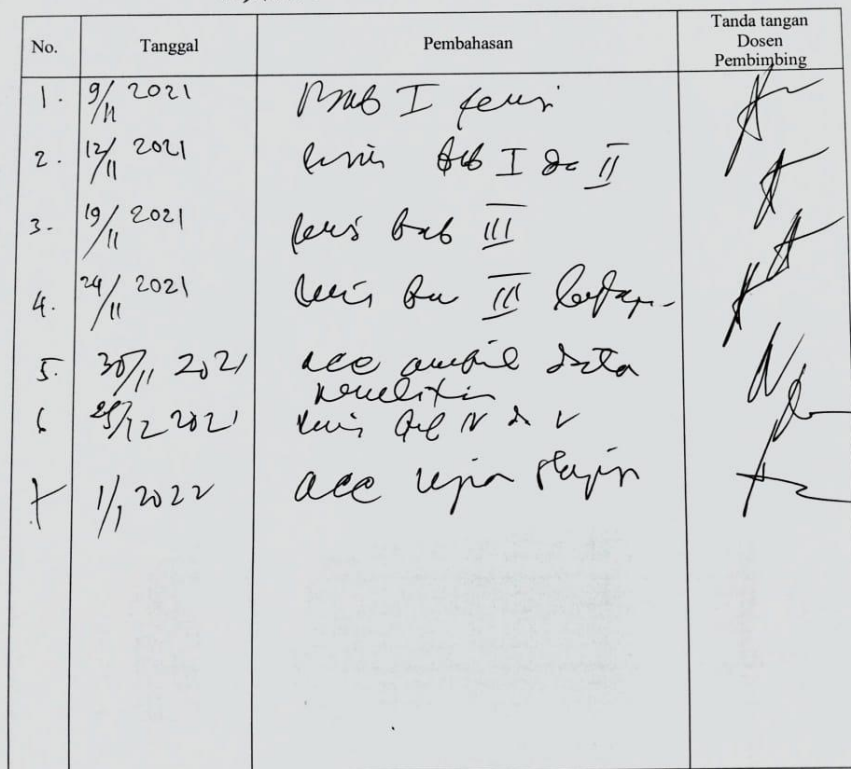 No. Tanggal Pembahasan Tanda tangan
Dosen
Pembimbing
1. 9/11 2021 Bab I revisi
2. 12/11 2021 revisi Bab I da II
3. 19/11 2021 revisi Bab III
4. 24/11 2021 revisi Bab III
5. 30/11 2021 acc ambil data
penelitian
6 25/12 2021 revisi Bab IV da V
7 1/1 2022 acc ujian skripsi